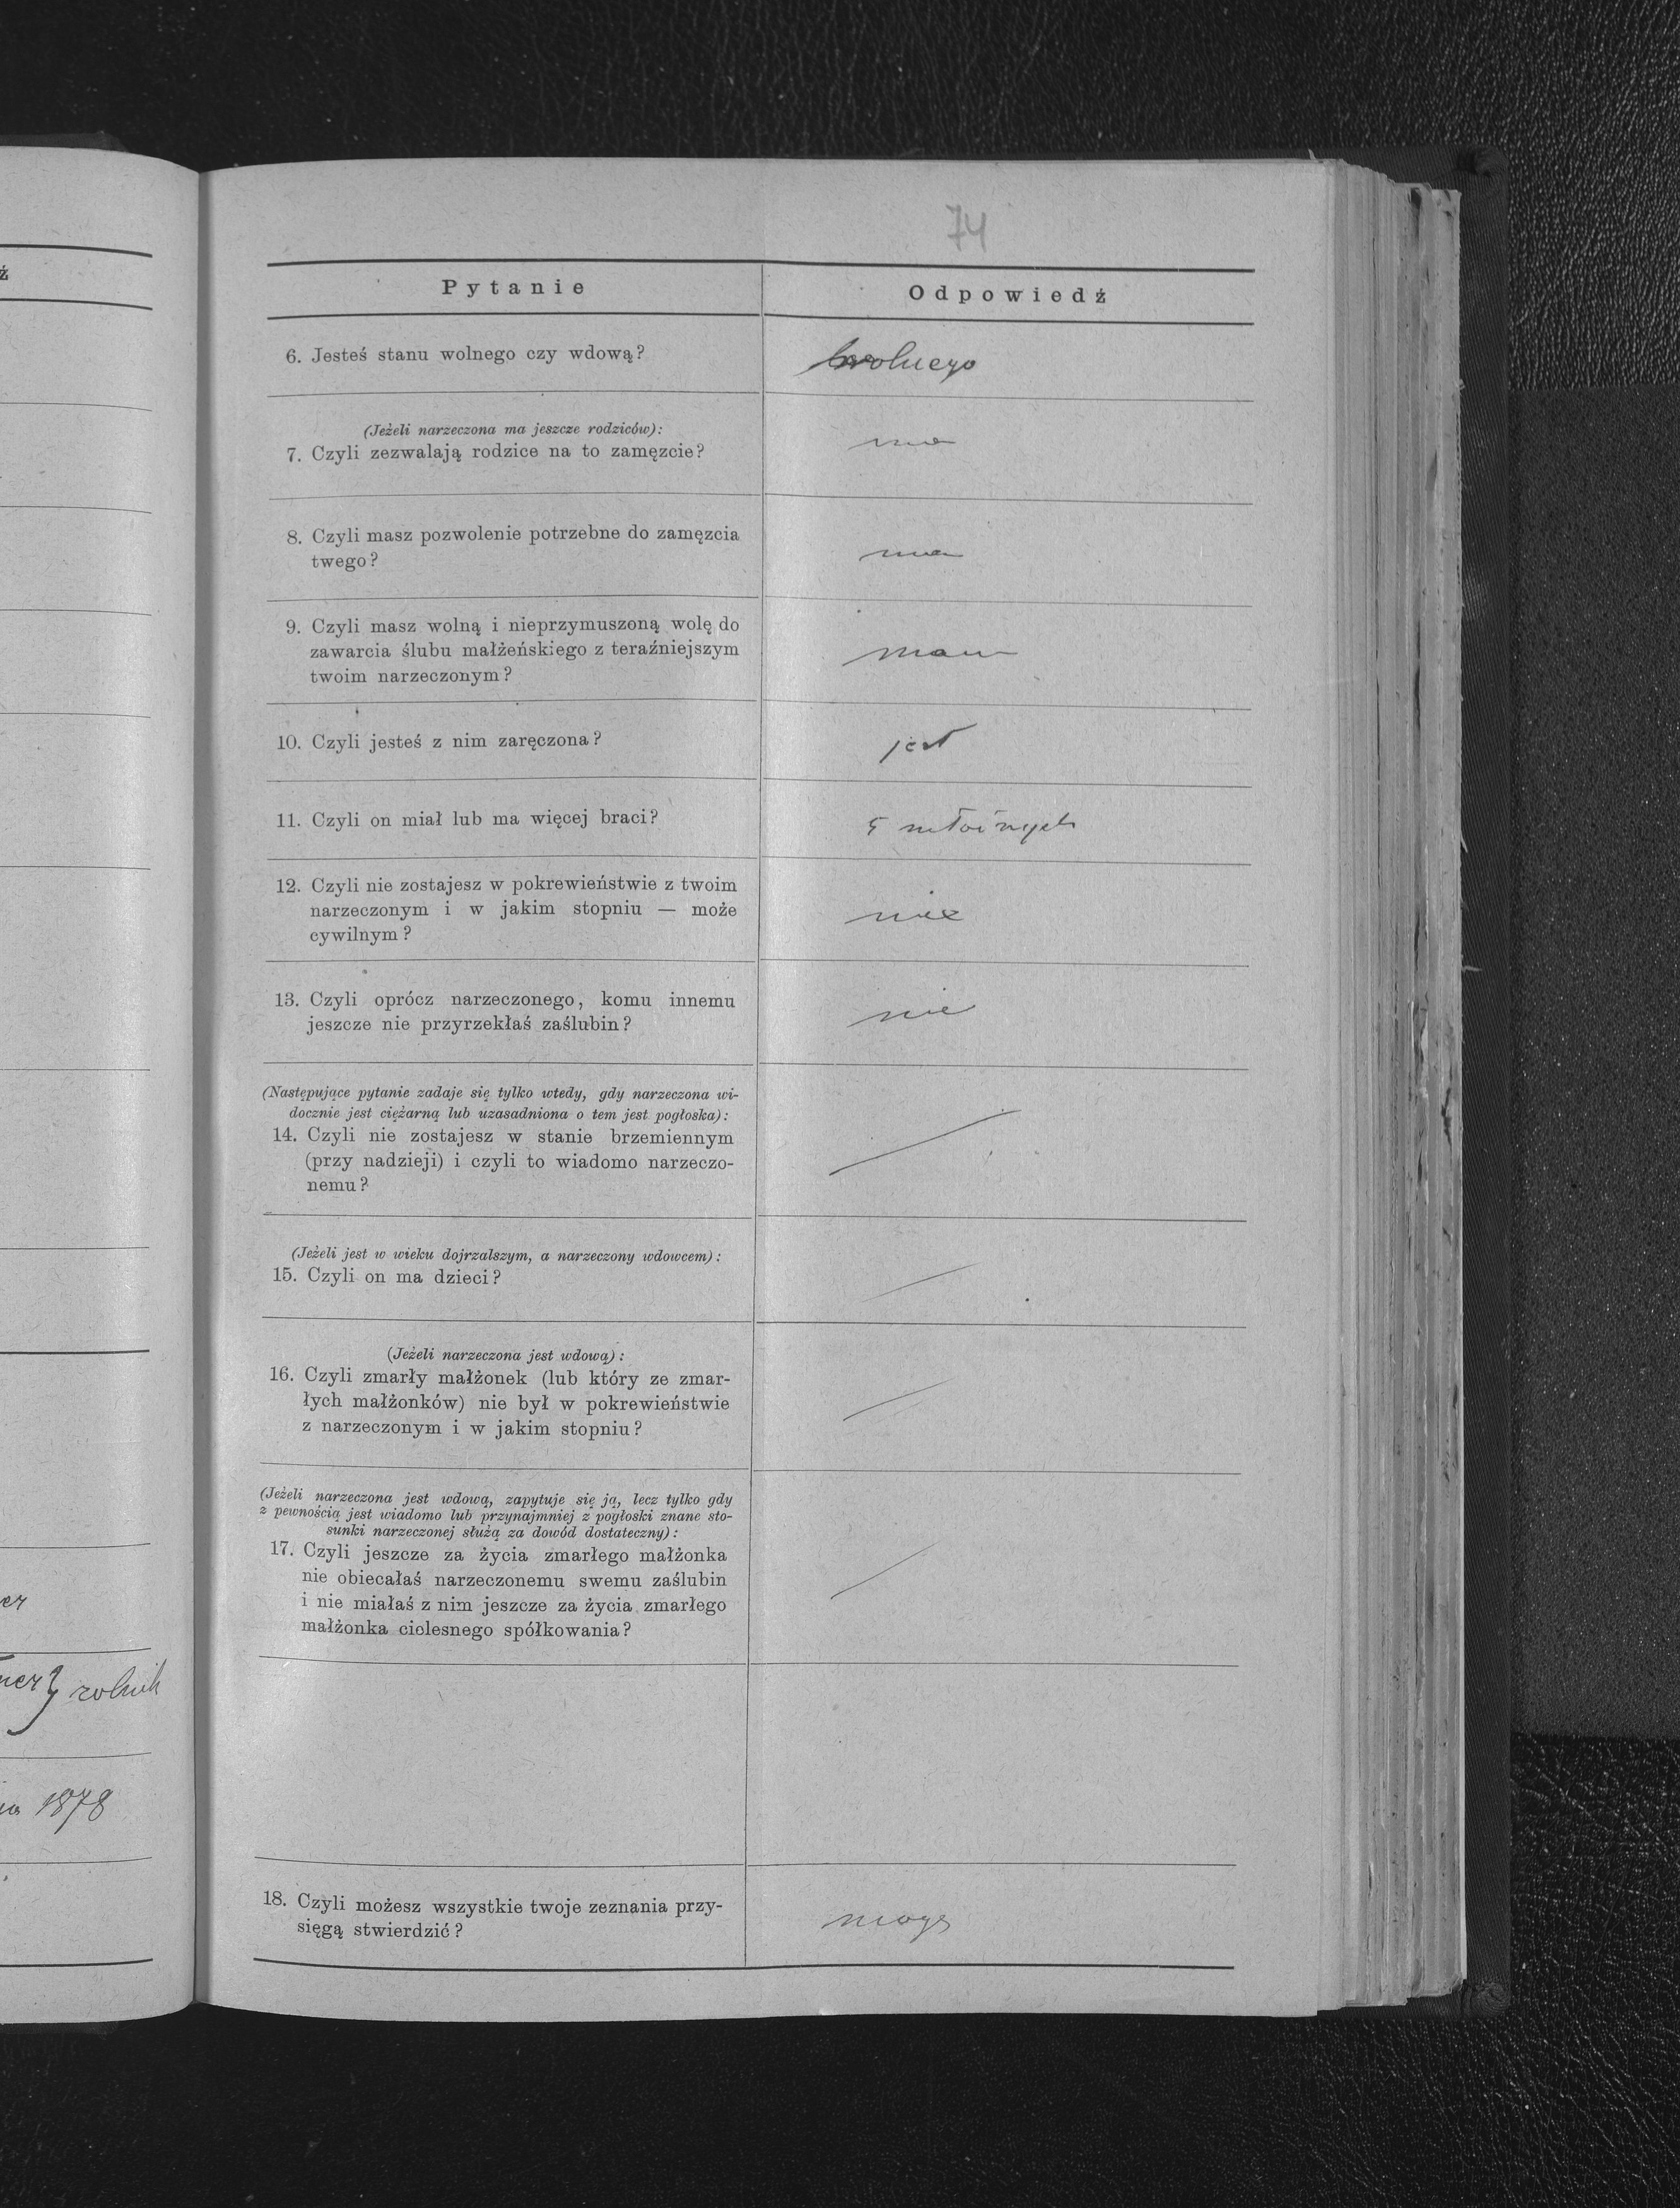 ź
er
ner} rolnik
1878
74
Pytanie
Odpowiedź
6. Jesteś stanu wolnego czy wdową?
wolnego
(Jeżeli narzeczona ma jeszcze rodziców):
7. Czyli zezwalają rodzice na to zamęzcie?
ma
8. Czyli masz pozwolenie potrzebne do zamęzcia
twego?
ma
9. Czyli masz wolną i nieprzymuszoną wolę do
zawarcia ślubu małżeńskiego z teraźniejszym
twoim narzeczonym?
mam
10. Czyli jesteś z nim zaręczona?
jest
11. Czyli on miał lub ma więcej braci?
5
12. Czyli nie zostajesz w pokrewieństwie z twoim
narzeczonym i w jakim stopniu — może
cywilnym?
nie
13. Czyli oprócz narzeczonego, komu innemu
jeszcze nie przyrzekłaś zaślubin?
nie
(Następujące pytanie zadaje się tylko wtedy, gdy narzeczona wi-
docznie jest ciężarną lub uzasadniona o tem jest pogłoska):
14. Czyli nie zostajesz w stanie brzemiennym
(przy nadzieji) i czyli to wiadomo narzeczo-
nemu?
(Jeżeli jest w wieku dojrzalszym, a narzeczony wdowcem):
15. Czyli on ma dzieci?
(Jeżeli narzeczona jest wdową):
16. Czyli zmarły małżonek (lub który ze zmar-
łych małżonków) nie był w pokrewieństwie
z narzeczonym i w jakim stopniu?
(Jeżeli narzeczona jest wdową, zapytuje się ją, lecz tylko gdy
z pewnością jest wiadomo lub przynajmniej z pogłoski znane sto-
sunki narzeczonej służą za dowód dostateczny):
17. Czyli jeszcze za życia zmarłego małżonka
nie obiecałaś narzeczonemu swemu zaślubin
i nie miałaś z nim jeszcze za życia zmarłego
małżonka cielesnego spółkowania?
18. Czyli możesz wszystkie twoje zeznania przy-
sięgą stwierdzić?
mogę